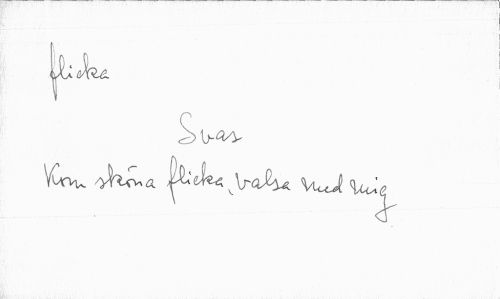 flicka
Svas
Kom sköna flicka, valsa med mig